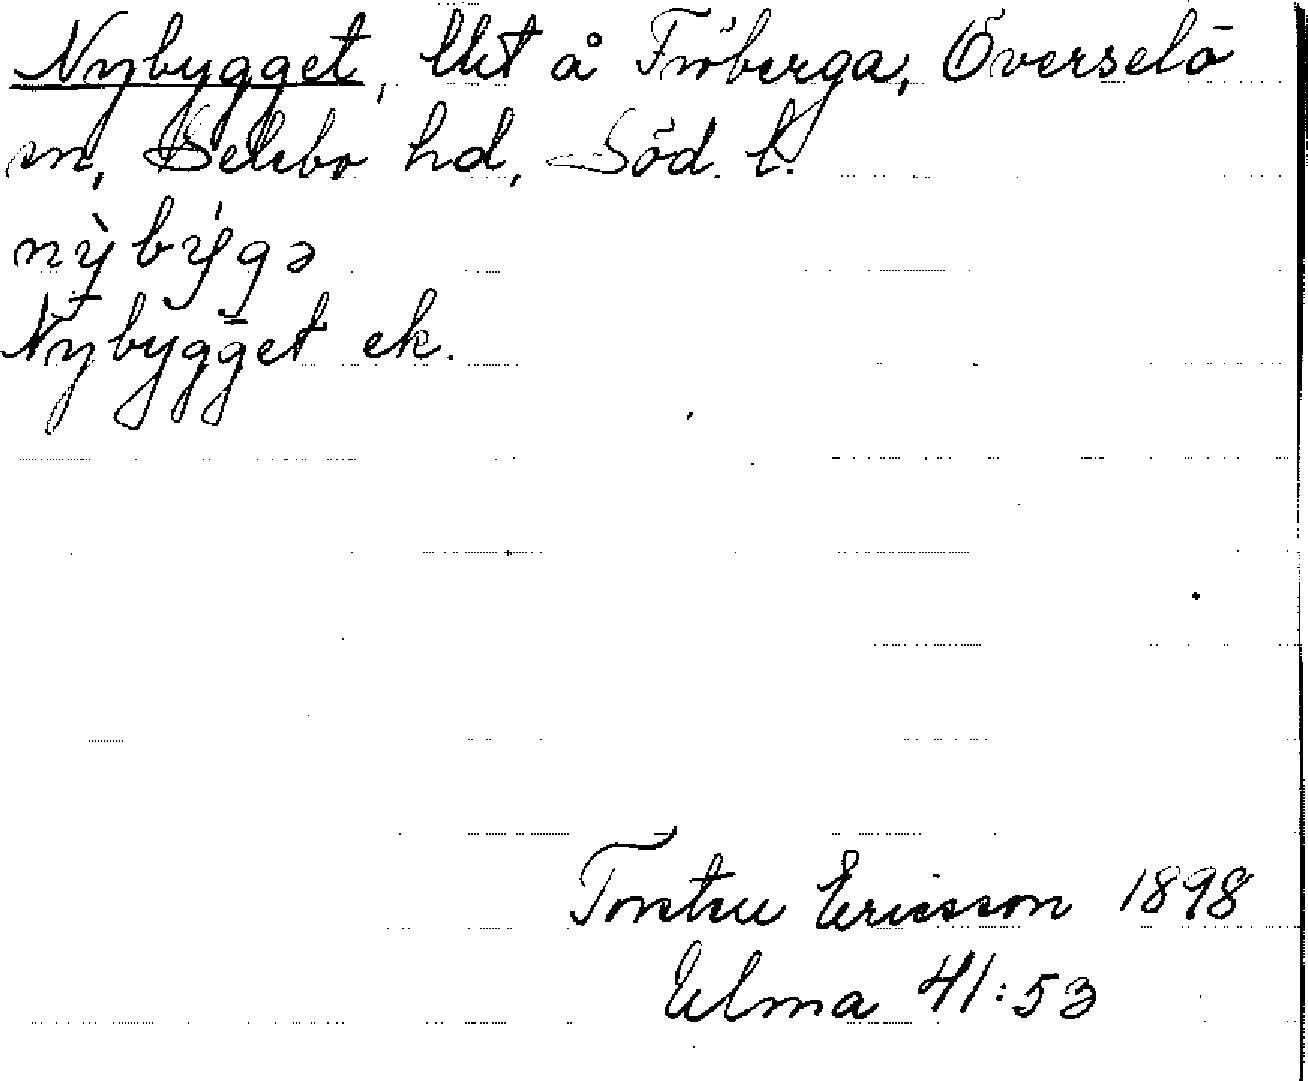 Nybygget, lht å Fröberga, Överselö
sn, Selebo hd, Söd. l.
nỳbýgə
Nybygget ek.
Torsten Ericsson 1898
Ulma 41:53